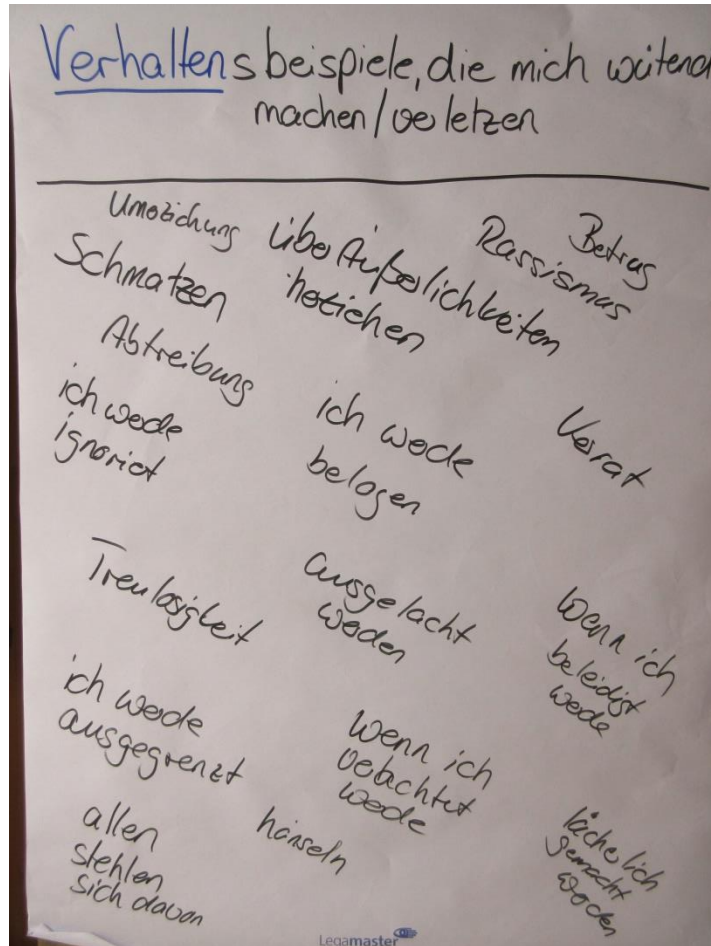 Verhaltensbeispiele, die mich wütend
machen/verletzen
Umerziehung
Schmatzen
über Äußerlichkeiten
herziehen
Rassismus
Betrug
Abtreibung
ich werde
ignoriert
ich werde
belogen
Verrat
Treulosigkeit
ausgelacht
werden
wenn ich
beleidigt
werde
ich werde
ausgegrenzt
wenn ich
verachtet
werde
allen
stehlen
sich davon
hänseln
lächerlich
gemacht
werden
Legamaster